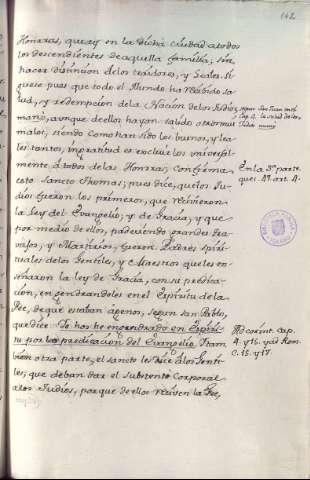 142
Honrras, que ay en la Dicha Ciudad a todos
los descendientes de aquella familia, sin
hacer distincion de los traidores, y Leales. Si
que pues que todo el Mundo ha recibido sa
lud, y redempcion de la Nacion de los Judios,
mano, aunque de ellos hayan salido otros mui
malos, siendo como han sido los buenos, y lea
les tantos, ingratitud es excluir los univerſal
mente a todos de las Honrras, Confirma
esto Sancto Thomas; pues dice, que los Ju
dios fueron los primeros, que recivieron
la Ley del Evangelio, y de Gracia, y que
por medio de ellos, padeciendo grandes tra
vajos, y Martirios, fueron Padres Spiri
tuales de los Gentiles, y Maestros que les en
señaron la ley de Gracia, con su predica
cion, engendrandoles en el Espiritu de la
Fee, de que estaban agenos, segun San Pablo,
que dice Yo hos he engendrado en Espiri
tu por la predicacion del Evangelio. Y tam
bien otra parte, el sancto les dice a los Genti
les, que deban dar el substento Corporal
a los Judios, porque de ellos reciven la Fee,
segun San Juan en el
Cap. 4. la salud de los
Judios
En la 3ª parte
que. 47. art. 4.
Ad corint. cap.
4. y 15. y ad Rom.
C. 15. y 17